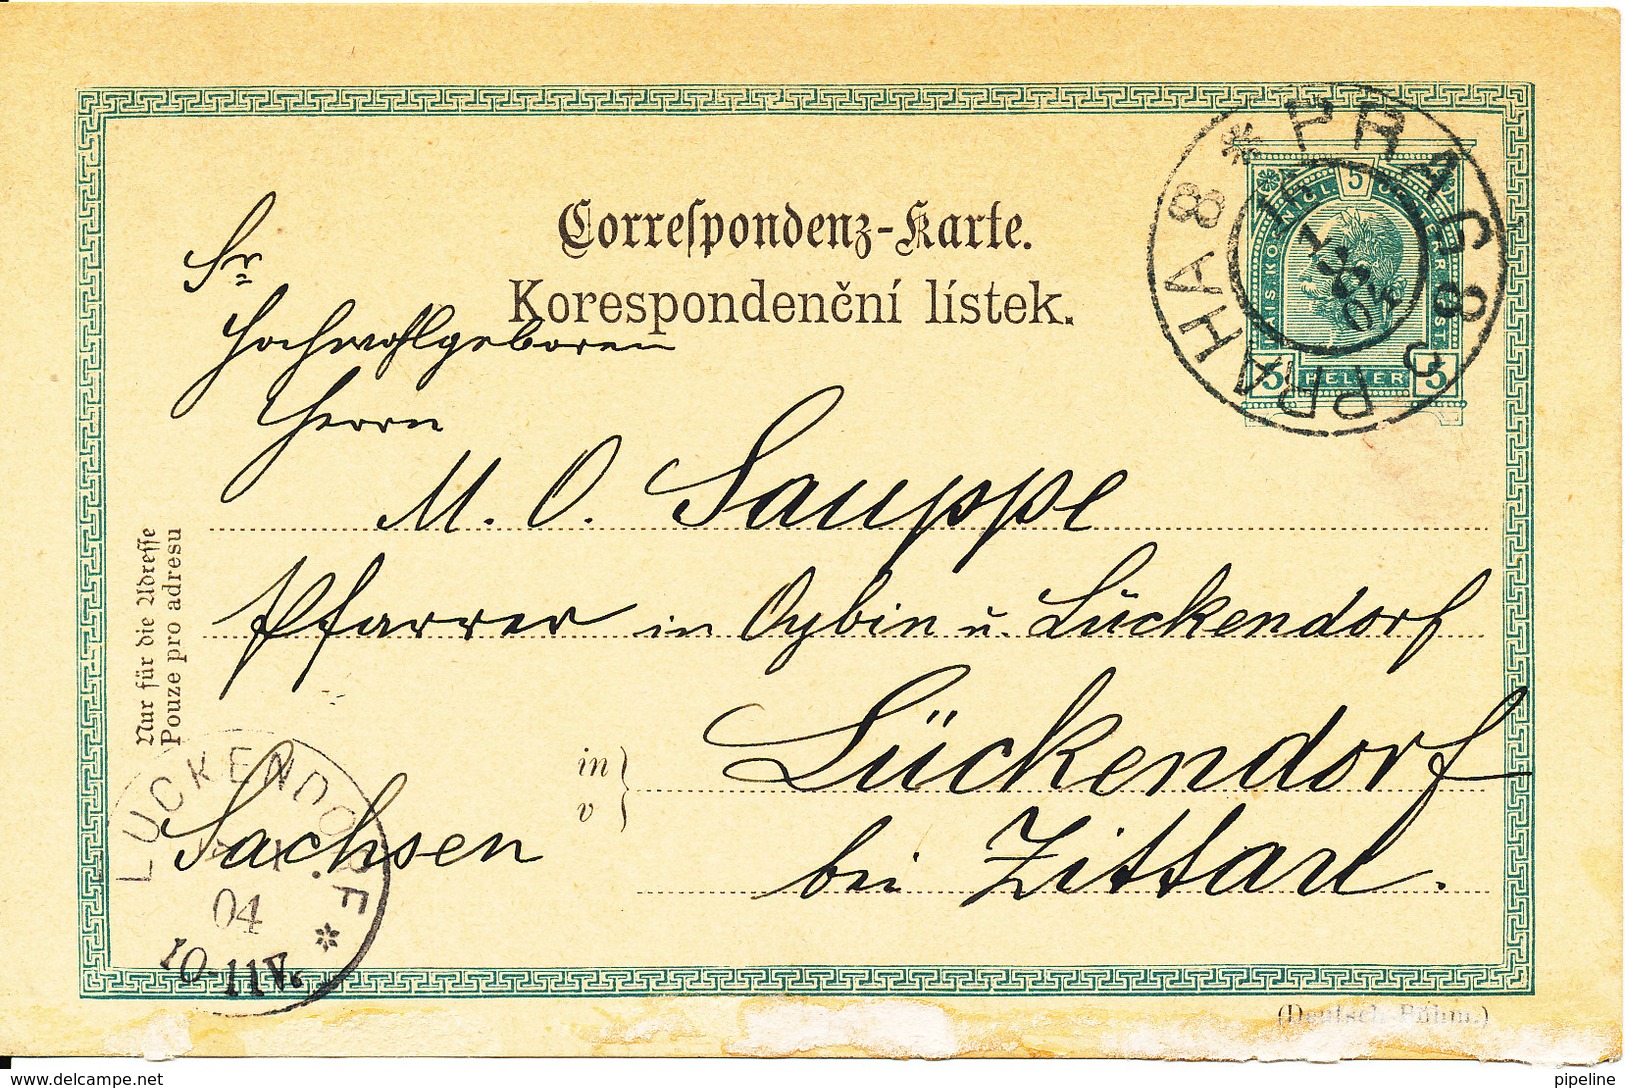 Correſpondenz-Karte.
Korespondenční lístek.
Sr
Hochwohlgeboren
Herrn
M. O. Sauppe
Pfarrer in Oybin u. Lückendorf
in
v
Lückendorf
bei Zittau.
Sachsen
Nur für die Adreſſe
Pouze pro adresu
PRAG 8 PRAHA 8
04
KAIS. KÖNIGL. 5 ÖSTERR. POST
5 HELLER 5
LÜCKENDORF
04
10-11V.
(Deutsch-Böhm.)
delcampe.net
pipeline